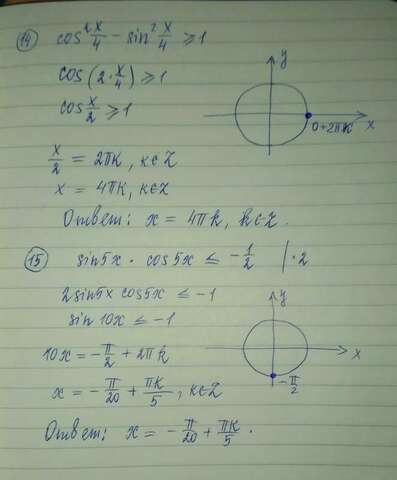 14 cos² x/4 - sin² x/4 ≥ 1
cos(2 · x/4) ≥ 1
cos x/2 ≥ 1
y
0+2πk
x
x/2 = 2πk, k∈Z
x = 4πk, k∈Z
Ответ: x = 4πk, k∈Z.
15 sin5x · cos5x ≤ -1/2 | · 2
2sin5x cos5x ≤ -1
sin 10x ≤ -1
y
x
-π/2
10x = -π/2 + 2πk
x = -π/20 + πk/5, k∈Z
Ответ: x = -π/20 + πk/5.